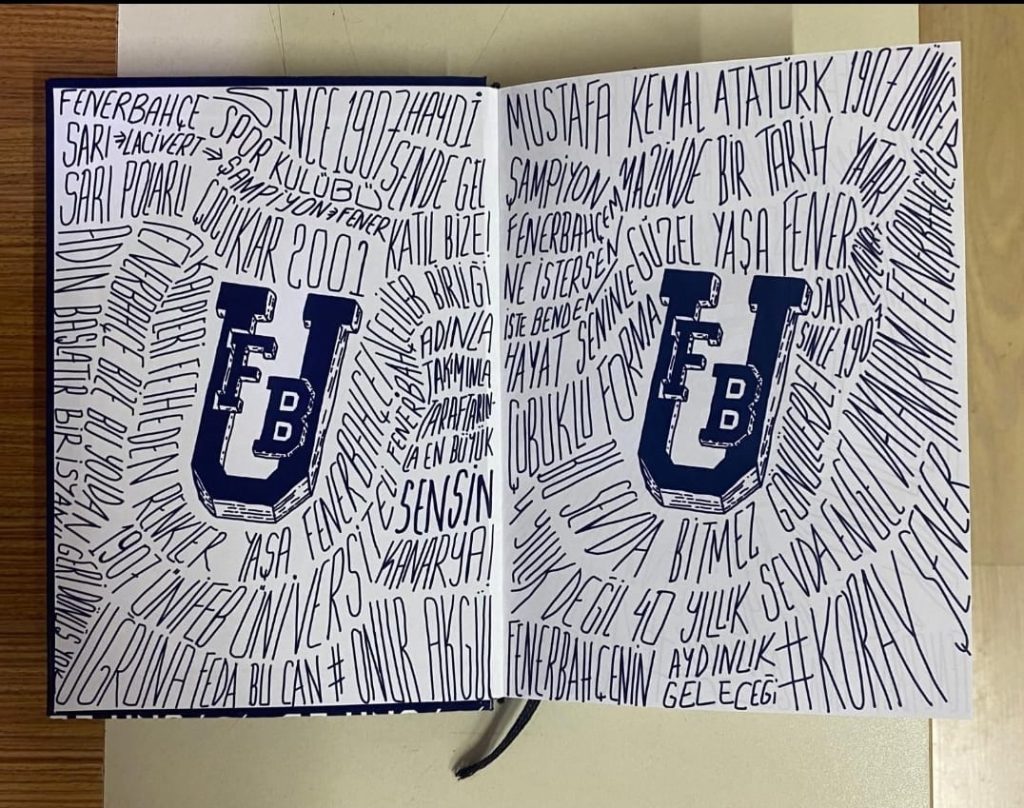 FENERBAHÇE SPOR KULÜBÜ
SİNCE 1907 HAYDİ
SARI → LACİVERT → ŞAMPİYON → FENER
SENDE GEL
KATIL BİZE!
SARI POLARLI ÇOCUKLAR 2001
BİRLİĞİ
FENERBAHÇE
KALPLERİ FETHEDEN RENKLER YAŞA FENERBAHÇE
ADINLA
TAKIMINLA
TARAFTARIN-
LA EN BÜYÜK
SENSİN
KANARYA!
1907 ÜNİFEB ÜNİVERSİTELİ FENERBAHÇE
UĞRUNA FEDA BU CAN # ONUR AKGÜL
U
FB
MUSTAFA KEMAL ATATÜRK 1907 ÜNİFEB
ŞAMPİYON
MAZİNDE BİR TARİH YATAR
FENERBAHÇEM
NE İSTERSEN
İSTE BENDEN
GÜZEL YAŞA FENER
SARI
SİNCE 1907
HAYAT SENİNLE
ÇUBUKLU FORMA
BU SEVDA BİTMEZ GÖNÜLLERDE
4 YILLIK DEĞİL 40 YILLIK SEVDA
FENERBAHÇENİN AYDINLIK
GELECEĞİ
# KORAY ŞENER
U
FB